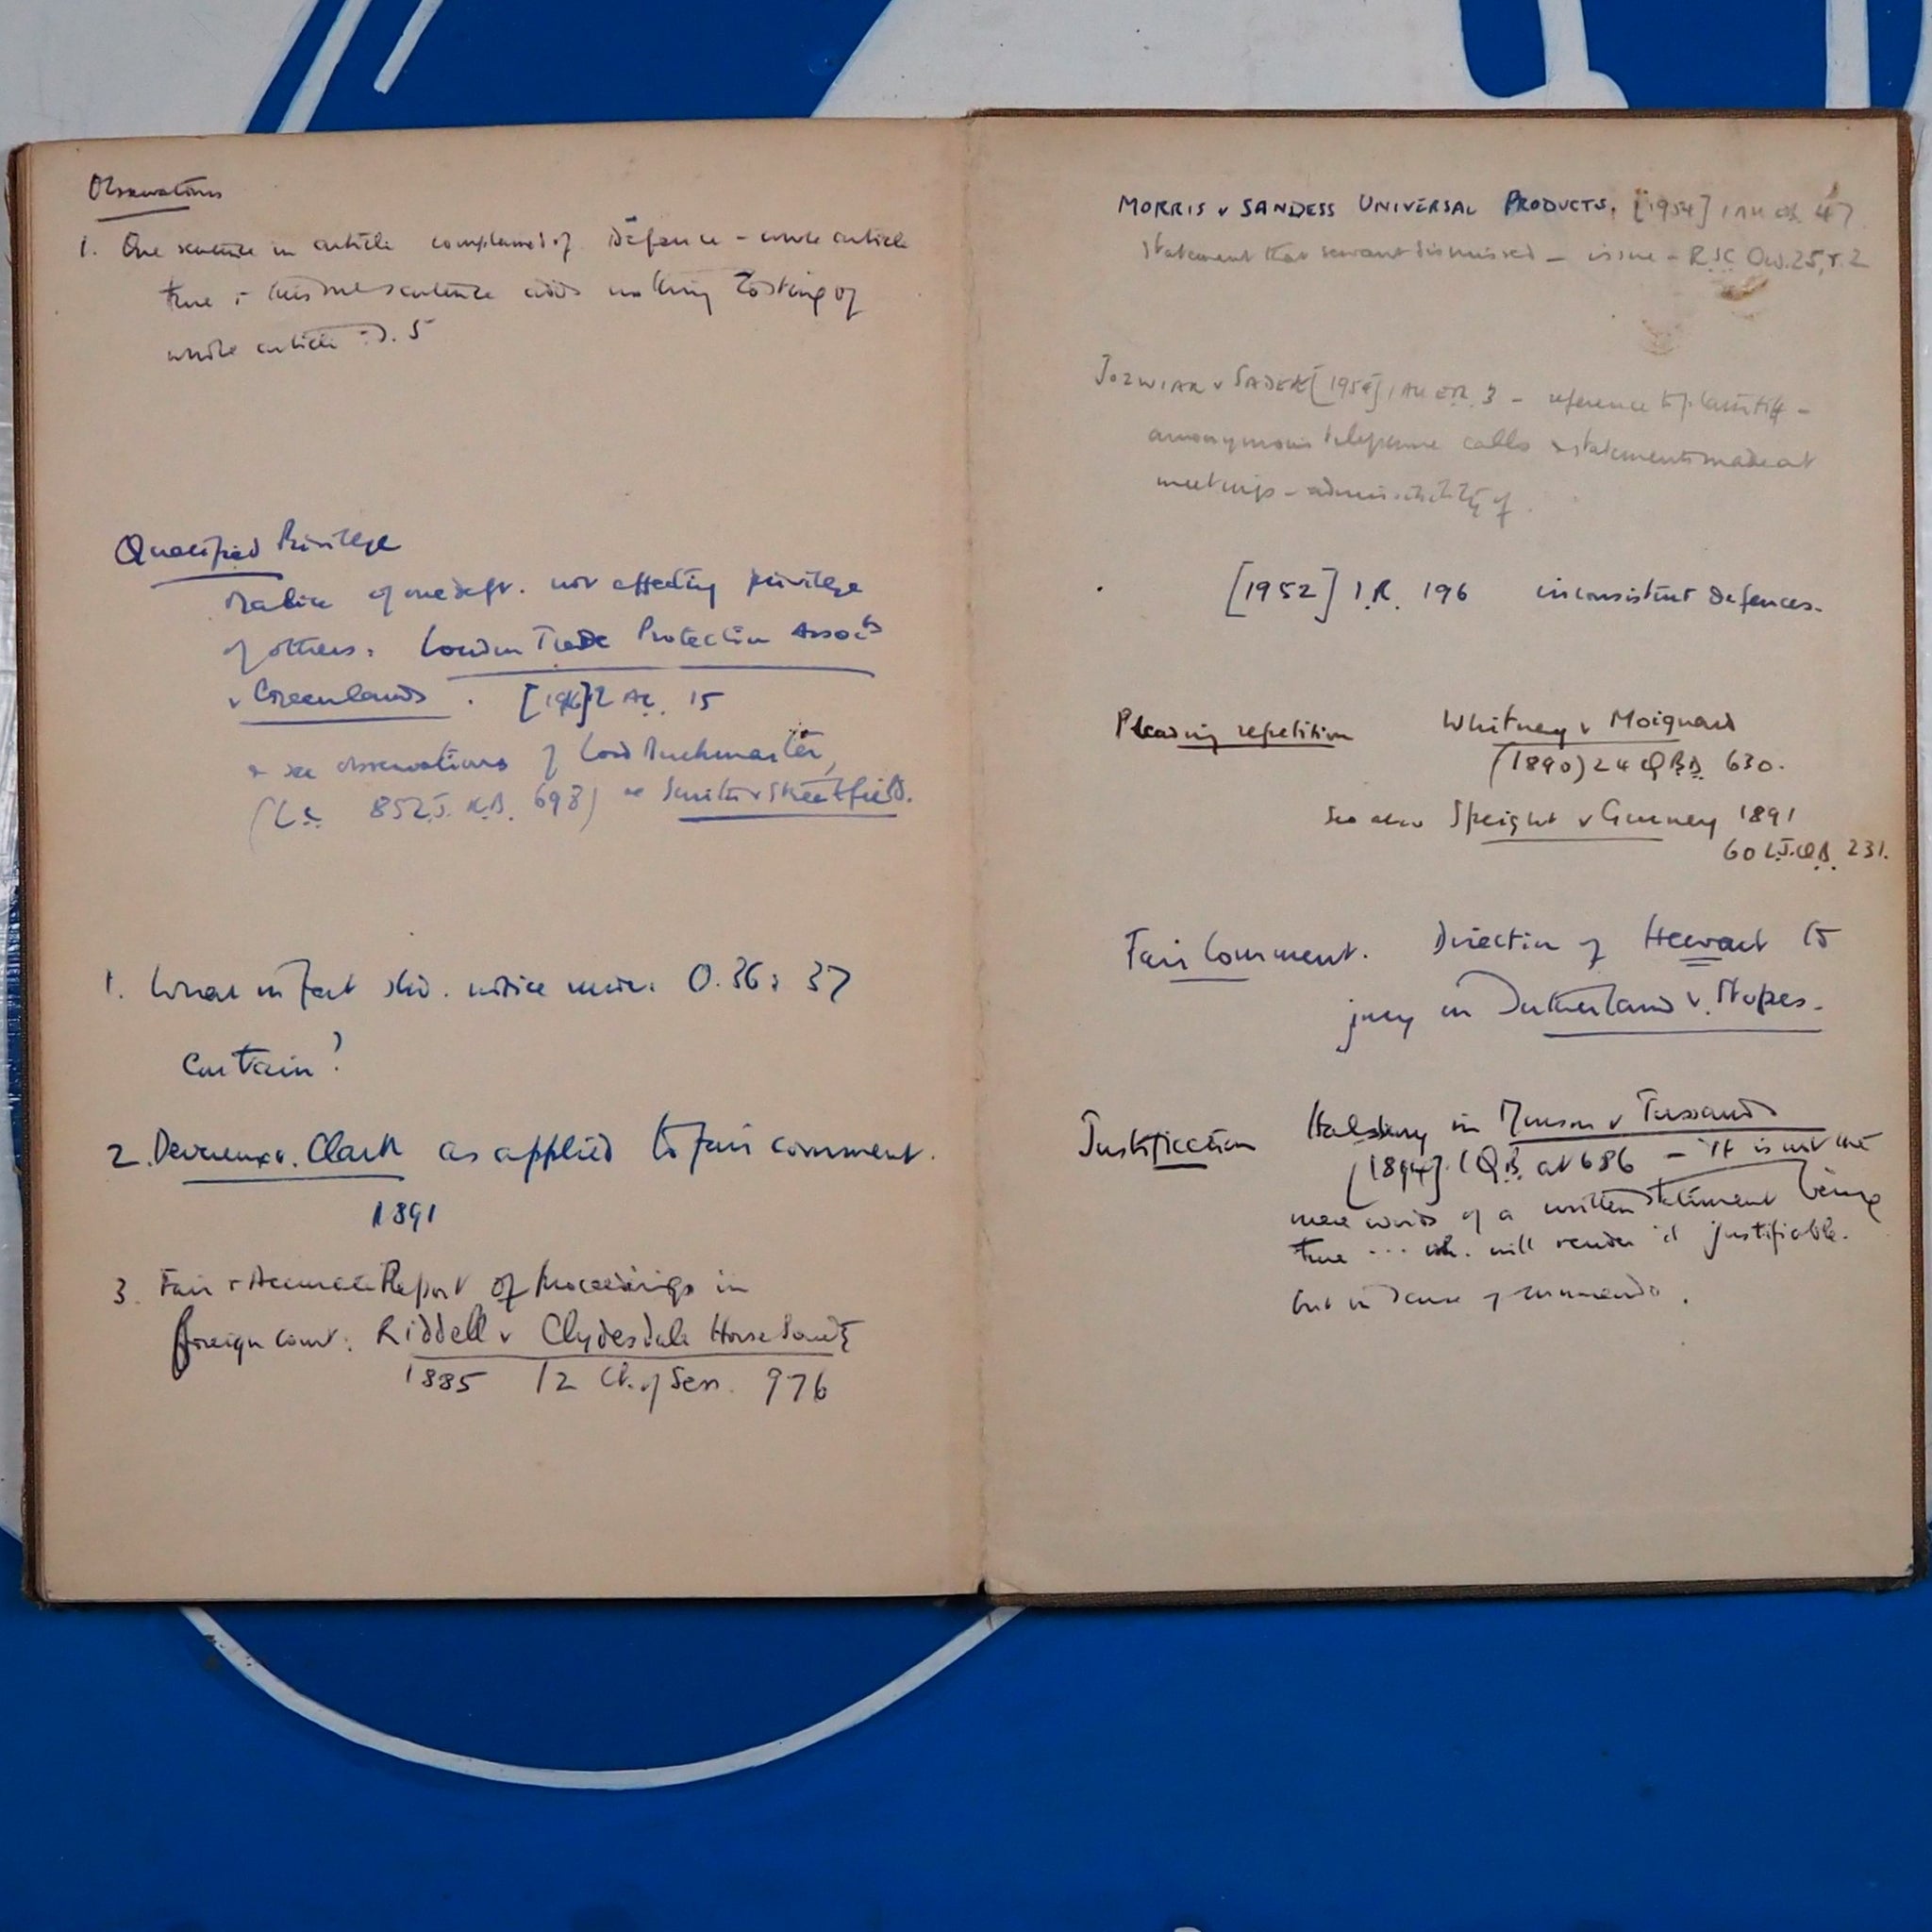 Observations
1. One sentence in article complained of Defence - whole article
true & this one sentence adds nothing to sting of
whole article. 5
Qualified Privilege
Malice of one deft. not affecting privilege
of others. London Trade Protection Assocts
v Greenlands. [1916] 2 AC. 15
& see observations of Lord Buckmaster,
(L.C. 85 L.J. K.B. 698) Smith v Streatfield.
1. What in fact shd. notice under O.36: 37
contain?
2. Devereux v. Clark as applied to fair comment.
1891
3. Fair & Accurate Report of Proceedings in
foreign court: Riddell v Clydesdale Horse Socety
1885 12 Ct. of Sess. 976
MORRIS v SANDESS UNIVERSAL PRODUCTS. [1954] 1 All ER 47
Statement that servant dismissed - issue - R.S.C. Ord. 25, r. 2
JOZWIAK v SADEK [1954] 1 All ER. 3 - reference to plaintiff -
anonymous telephone calls & statements made at
meetings - admissibility of.
[1952] I.R. 196 inconsistent defences.
Pleading repetition Whitney v Moignard
(1890) 24 Q.B.D. 630.
See also Speight v Gurney 1891
60 L.J.Q.B. 231.
Fair Comment. Direction of Hewart to
jury in Sutherland v. Stopes.
Justification Halsbury in Monson v Tussauds
[1894] 1 Q.B. at 686 - "It is not the
mere words of a written statement being
true ... wh. will render it justifiable.
but in sense & innuendo.